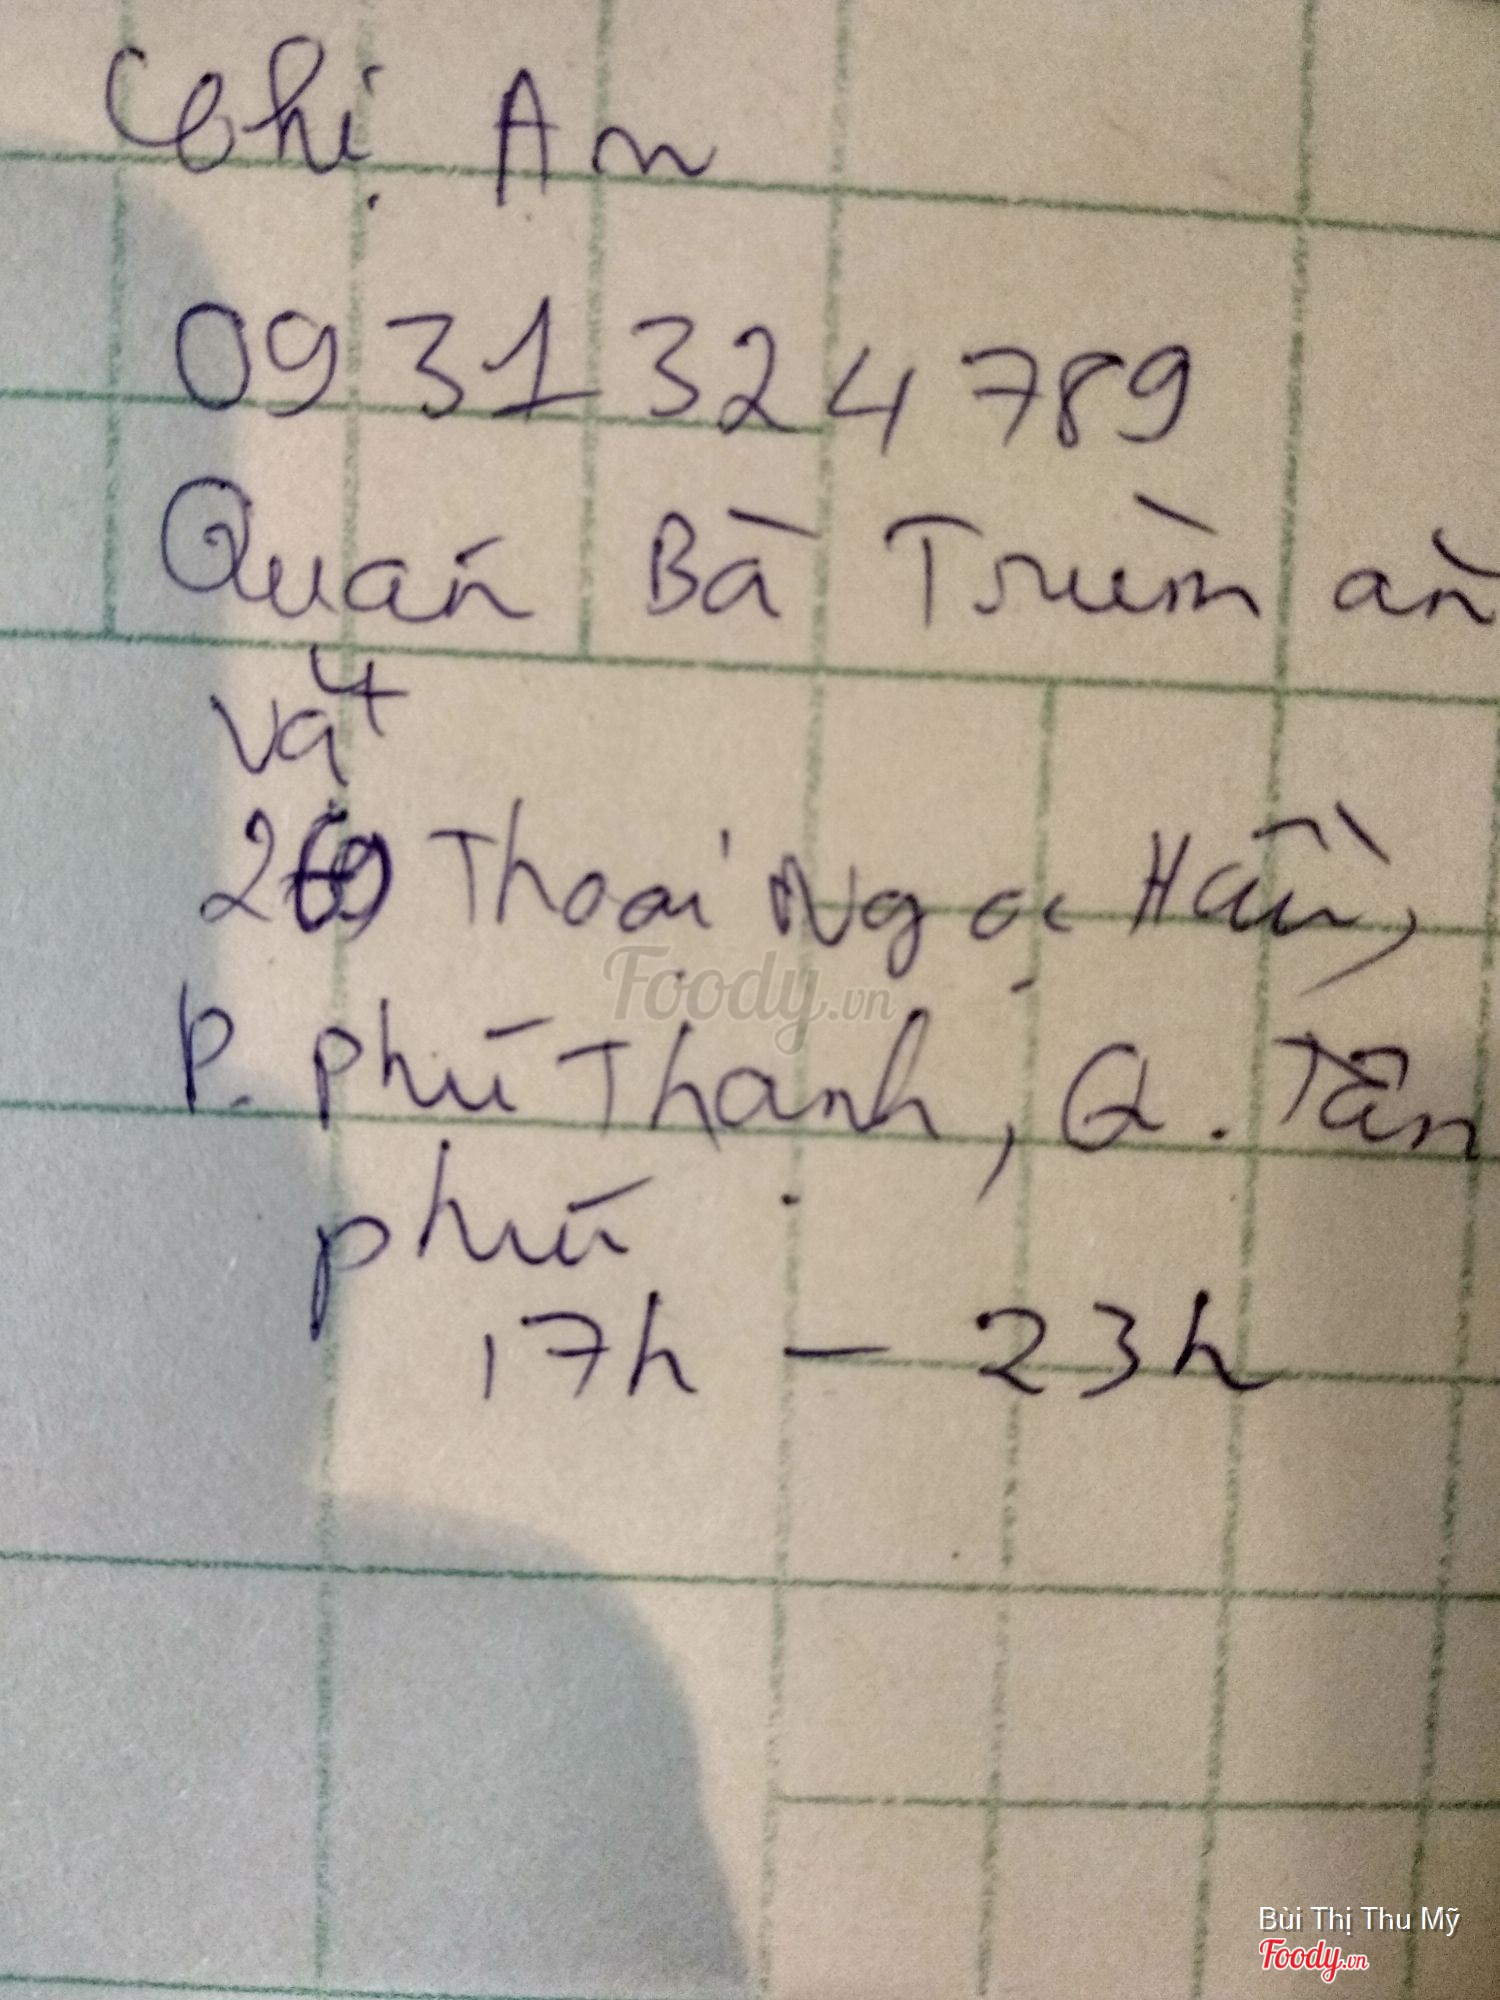 Chị An
0931324789
Quán Bà Trùm ăn
vặt
Thoại Ngọc Hầu,
P. Phú Thạnh, Q. Tân
phú
17h - 23h
Foody.vn
Bùi Thị Thu Mỹ
Foody.vn